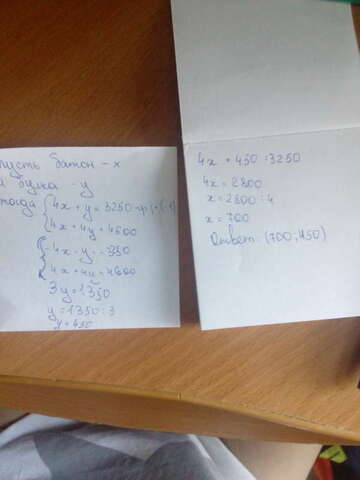 Пусть батон - x
а булка - y
тогда 4x + y = 3250 | · (-1)
4x + 4y = 4600
-4x - y = -3250
4x + 4y = 4600
3y = 1350
y = 1350 : 3
y = 450
4x + 450 = 3250
4x = 2800
x = 2800 : 4
x = 700
Ответ: (700; 450)